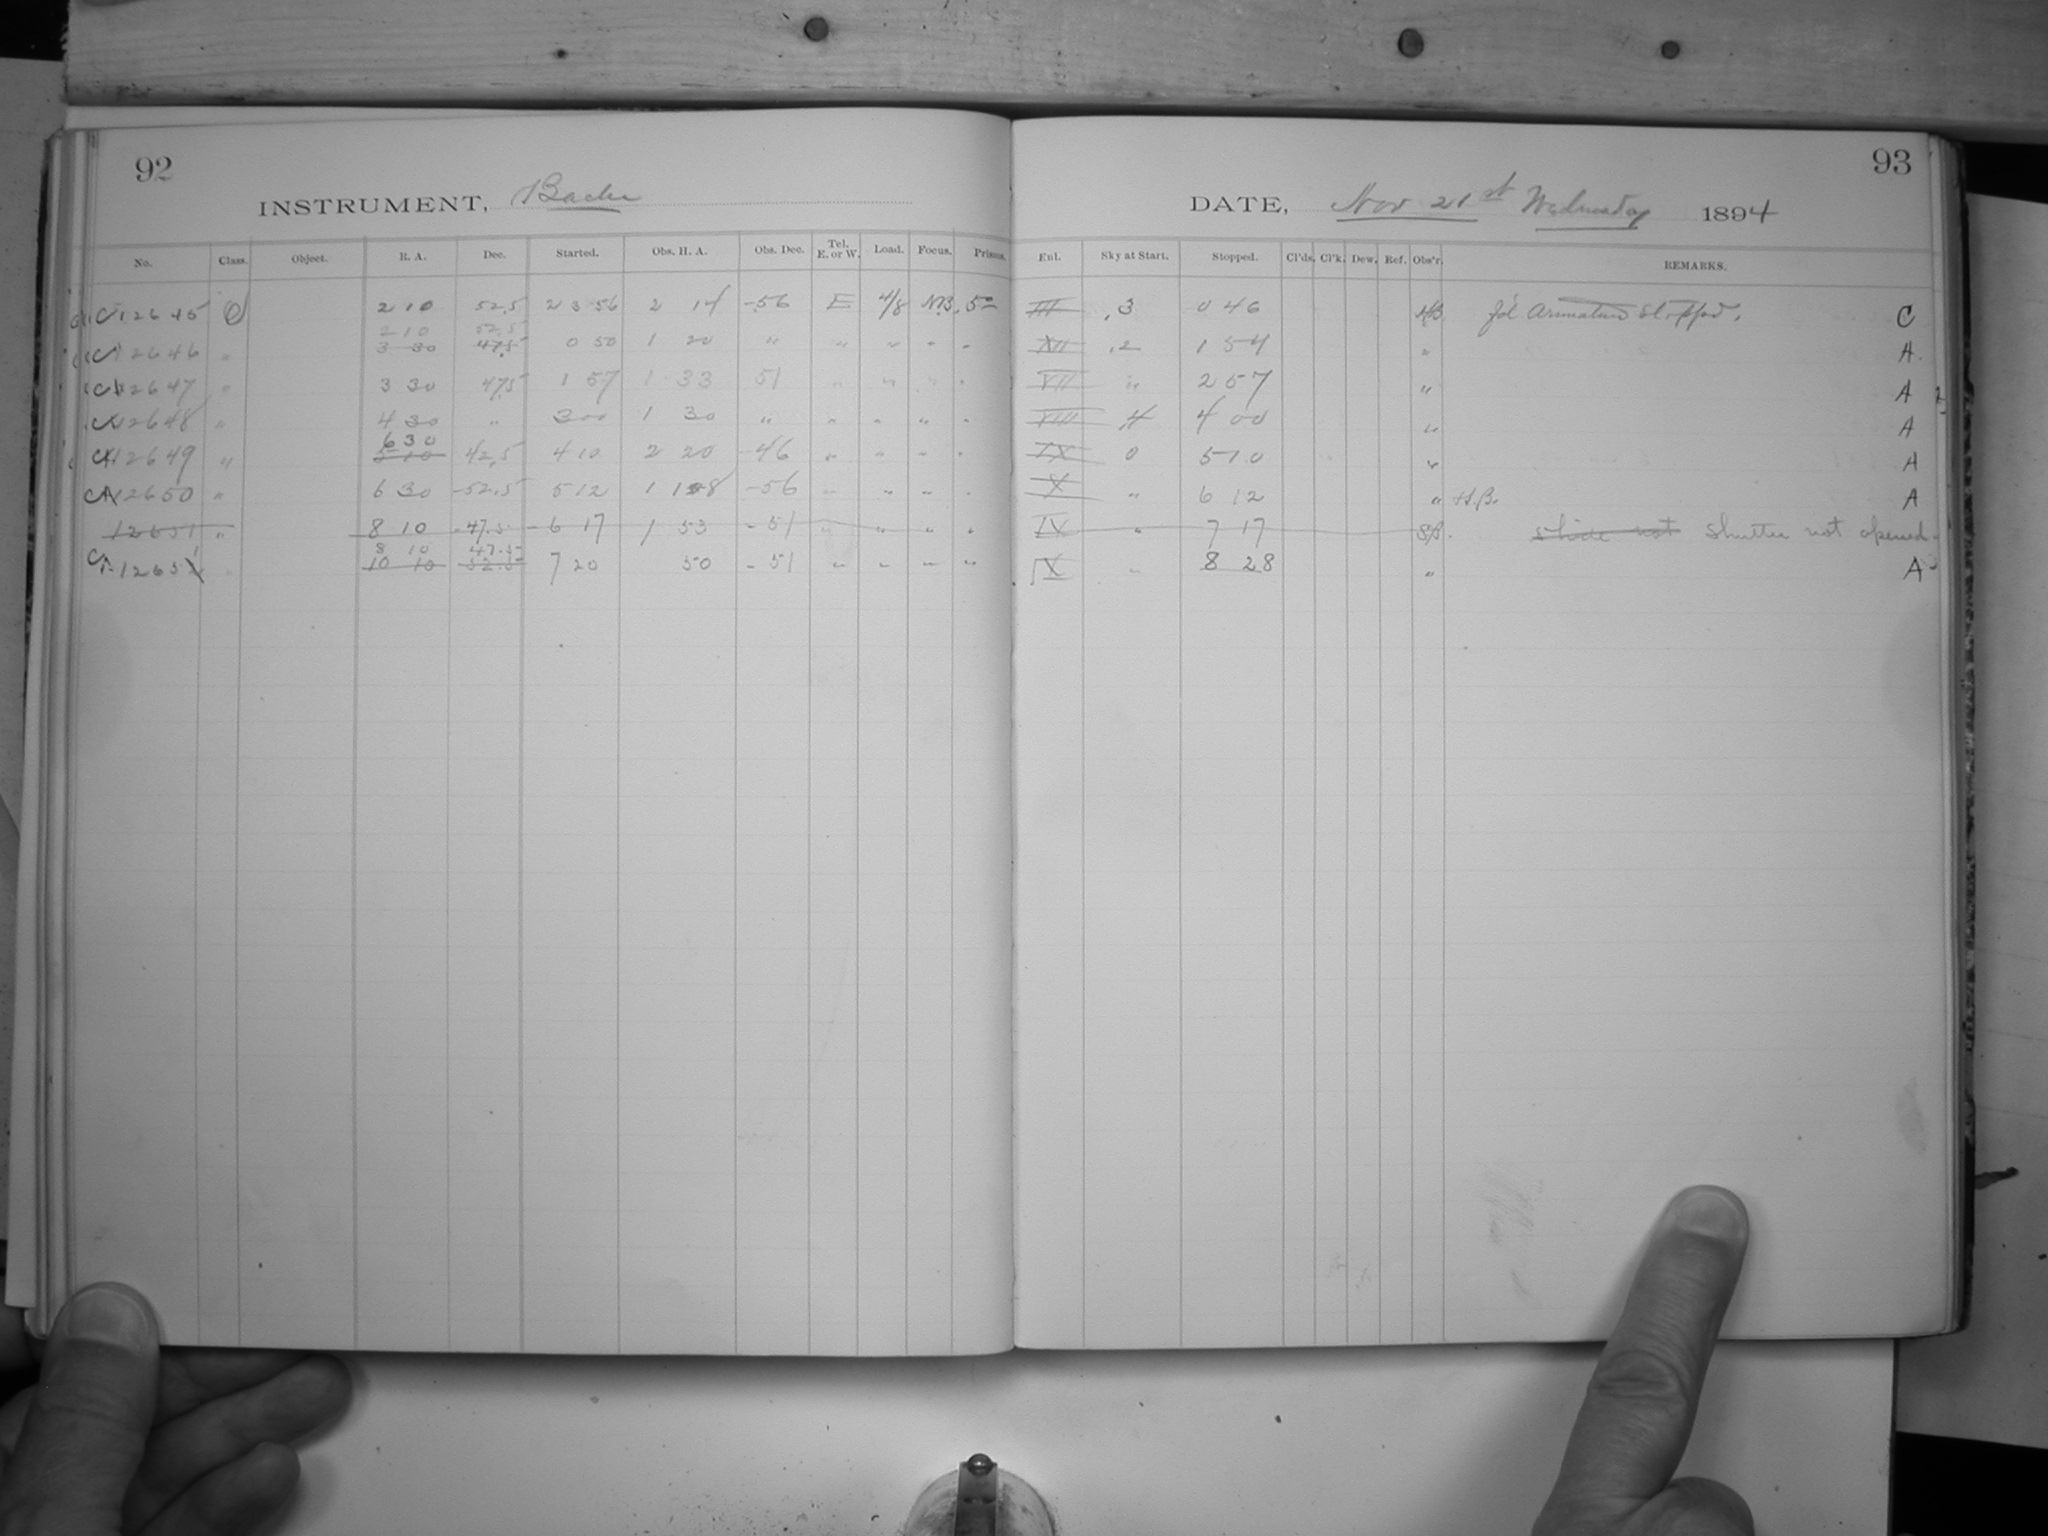 92
INSTRUMENT, Bache
No. Class. Object. R. A. Dec. Started. Obs. H. A. Obs. Dec. Tel. E. or W. Load. Focus. Prisms.
C 12645 O 2 10 52.5 23 56 2 14 -56 E 4/8 NB. 50
2 10 52.5
C 12646 " 3 30 47.5 0 50 1 20 " " " " "
C 12647 " 3 30 47.5 1 57 1 33 51 " " " "
C 12648 " 4 30 " 3 00 1 30 " " " " "
6 30
C 12649 " 5 10 42.5 4 10 2 20 -46 " " " "
C 12650 " 6 30 -52.5 5 12 1 18 -56 " " " "
12651 " 8 10 -47.5 6 17 1 53 -51 " " " "
8 10 47.5
C 1265 " 10 10 52.5 7 20 50 -51 " " " "
93
DATE, Nov 21st Wednesday 1894
Enl. Sky at Start. Stopped. Cl'ds. Cl'k. Dew. Ref. Obs'r. REMARKS.
III .3 0 46 Armature C
XII .2 1 54 " A.
VII " 2 57 " A
VIII 4 4 00 " A
IX 0 5 10 " A
X " 6 12 " H.B. A
IX " 7 17 slide not Shutter not opened.
IX " 8 28 " A